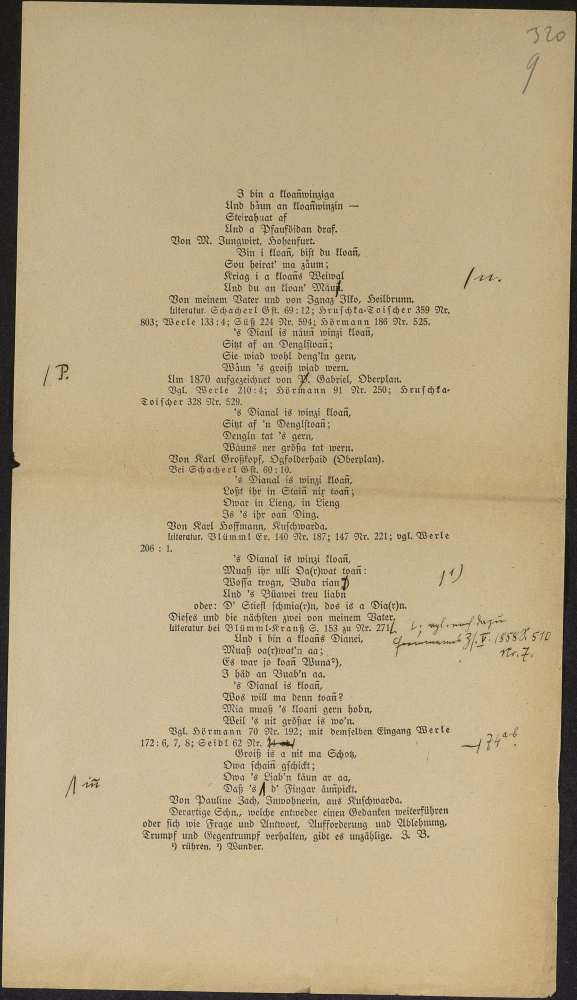 320
9
I bin a kloañwinziga
Und håun an kloañwinzin —
Steirahuat af
Und a Pfaufödan draf.
Von M. Jungwirt, Hohenfurt.
Bin i kloañ, bist du kloañ,
Sou heirat' ma zåum;
Kriag i a kloañs Weiwal
Und du an kloan' Måuñ. /n.
Von meinem Vater und von Ignaz Ilko, Heilbrunn.
Literatur. Schacherl Gst. 69 : 12; Hruschka-Toischer 359 Nr.
803; Werle 133 : 4; Süß 224 Nr. 594; Hörmann 186 Nr. 525.
's Diaul is nåuñ winzi kloañ,
Sitzt af an Denglstoañ;
Sie wiad wohl deng'ln gern,
Wåun 's groiß wiad wern.
/ P. Um 1870 aufgezeichnet von P. Gabriel, Oberplan.
Vgl. Werle 210 : 4; Hörmann 91 Nr. 250; Hruschka-
Toischer 328 Nr. 529.
's Dianal is winzi kloañ,
Sitzt af 'n Denglstoañ;
Dengln tat 's gern,
Wåuns ner größa tat wern.
Von Karl Großkopf, Ogfolderhaid (Oberplan).
Bei Schacherl Gst. 69 : 10.
's Dianal is winzi kloañ,
Loßt ihr in Staiñ nix toañ;
Owar in Lieng, in Lieng
Is 's ihr oañ Ding.
Von Karl Hoffmann, Kuschwarda.
Literatur. Blümml Er. 140 Nr. 187; 147 Nr. 221; vgl. Werle
206 : 1.
's Dianal is winzi kloañ,
Muaß ihr nlli Oa(r)wat toañ:
Wossa trogn, Buda rian /1)
Und 's Büawei treu liabn
oder: D' Stiefl schmia(r)n, dos is a Dia(r)n.
Dieses und die nächsten zwei von meinem Vater.
Literatur bei Blümml-Krauß S. 153 zu Nr. 271
Und i bin a kloañs Dianei,
Muaß oa(r)wat'n aa;
Es war jo koañ Wuna²),
I häd an Buab'n aa.
's Dianal is kloañ,
Wos will ma denn toañ?
Mia muaß 's kloani gern hobn,
Weil 's nit größar is wo'n.
Vgl. Hörmann 70 Nr. 192; mit demselben Eingang Werle
172 : 6, 7, 8; Seidl 62 Nr. 74 a-b.
Groiß is a nit ma Schotz,
Owa schaiñ gschickt;
Owa 's Liab'n kåun ar aa,
Daß 's d' Fingar åuñpickt.
Von Pauline Zach, Inwohnerin, aus Kuschwarda.
Derartige Schn., welche entweder einen Gedanken weiterführen
oder sich wie Frage und Antwort, Aufforderung und Ablehnung,
Trumpf und Gegentrumpf verhalten, gibt es unzählige. Z. B.
¹) rühren. ²) Wunder.